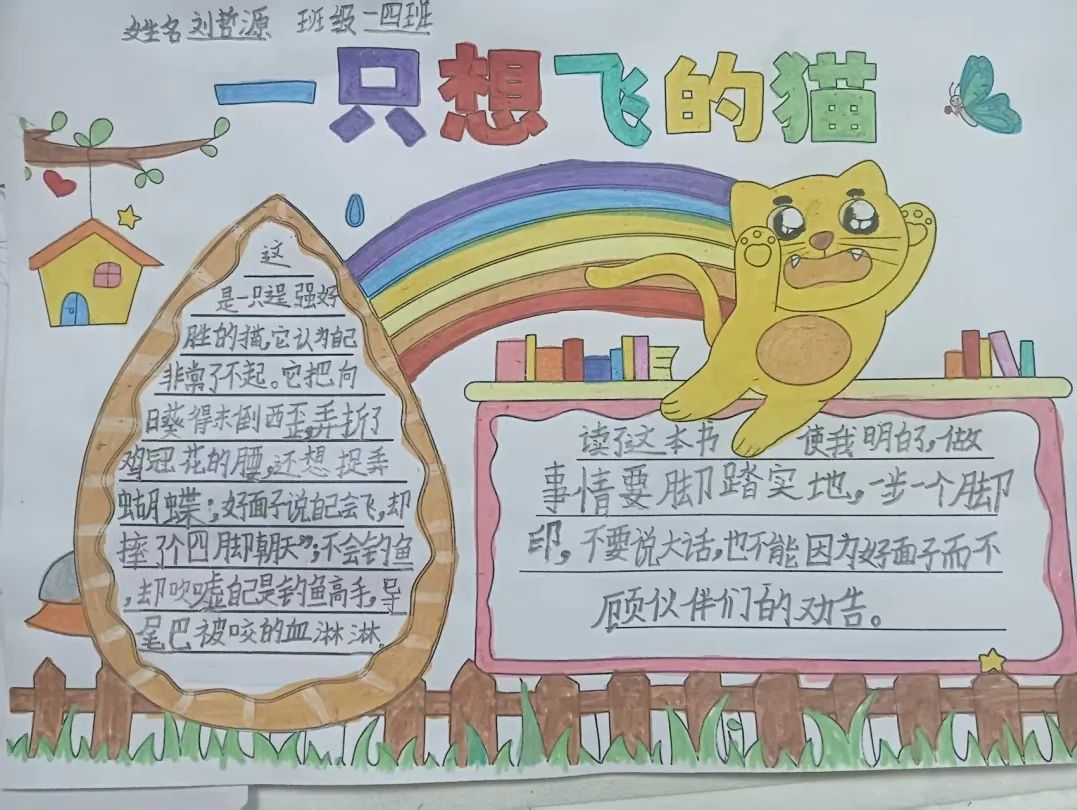 姓名刘哲源 班级一四班
一只想飞的猫
这
是一只逞强好
胜的猫,它认为自己
非常了不起。它把向
日葵得东倒西歪,弄折了
鸡冠花的腰,还想捉弄
蝴蝶;好面子说自己会飞,却
摔了个四脚朝天";不会钓鱼
,却吹嘘自己是钓鱼高手,导
尾巴被咬的血淋淋。
读了这本书 使我明白了,做
事情要脚踏实地,一步一个脚
印,不要说大话,也不能因为好面子而不
顾伙伴们的劝告。